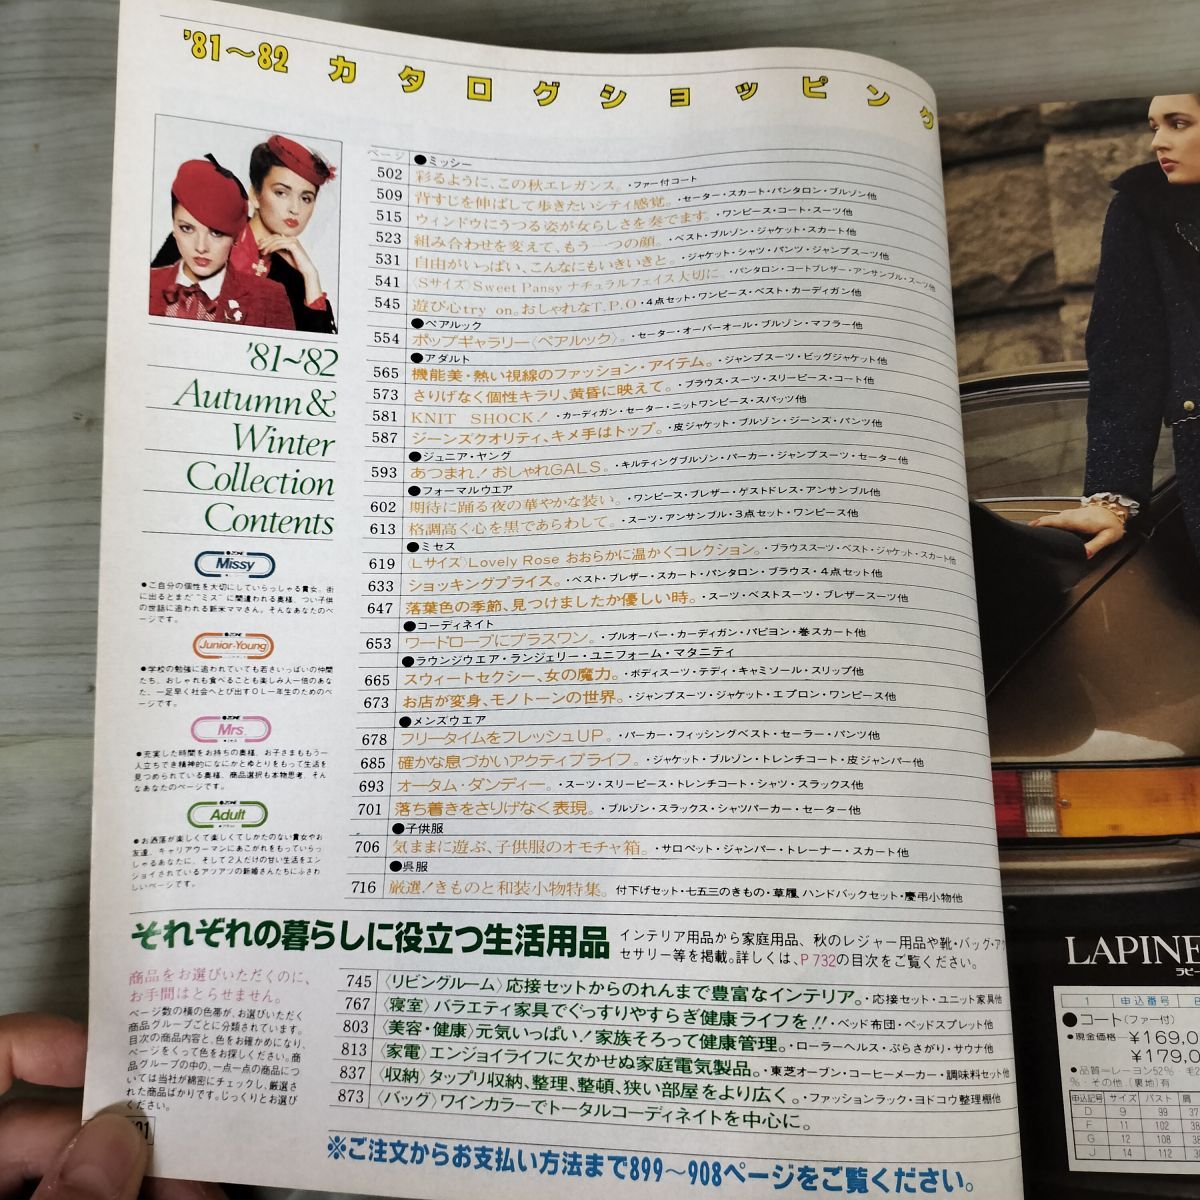 '81〜82 カタログショッピング
'81〜'82
Autumn &
Winter
Collection
Contents
ZONE
Missy
●ご自分の個性を大切にしていらっしゃる貴女、街
に出るとまだ“ミズ”に間違われる奥様、つい子供
の世話に追われる新米ママさん。そんなあなたのペ
ージです。
ZONE
Junior-Young
●学校の勉強に追われていても若さいっぱいの仲間
たち、おしゃれも食べることも楽しみ人一倍のあな
た、一足早く社会へとび出すOL一年生のためのペ
ージです。
ZONE
Mrs.
●充実した時間をお持ちの奥様、お子さまももう一
人立ちでき精神的になにかとゆとりをもって生活を
見つめられている奥様、商品選択も本物思考、そん
なあなたのページです。
ZONE
Adult
●お洒落が楽しくて楽しくてしかたのない貴女やお
友達、キャリアウーマンにあこがれをもっていらっ
しゃるあなたに、そして2人だけの甘い生活をエン
ジョイされているアツアツの新婚さんたちにふさわ
しいページです。
ページ ●ミッシー
502 彩るように、この秋エレガンス。・ファー付コート
509 背すじを伸ばして歩きたいシティ感覚。・セーター・スカート・パンタロン・ブルゾン他
515 ウィンドウにうつる姿が女らしさを奏でます。・ワンピース・コート・スーツ他
523 組み合わせを変えて、もう一つの顔。・ベスト・ブルゾン・ジャケット・スカート他
531 自由がいっぱい、こんなにもいきいきと。・ジャケット・シャツ・パンツ・ジャンプスーツ他
541 〈Sサイズ〉Sweet Pansy ナチュラルフェイス大切に。・パンタロン・コートブレザー・アンサンブル・スーツ他
545 遊び心try on。おしゃれなT.P.O・4点セット・ワンピース・ベスト・カーディガン他
●ペアルック
554 ポップギャラリー〈ペアルック〉。・セーター・オーバーオール・ブルゾン・マフラー他
●アダルト
565 機能美・熱い視線のファッション・アイテム。・ジャンプスーツ・ビッグジャケット他
573 さりげなく個性キラリ、黄昏に映えて。・ブラウス・スーツ・スリーピース・コート他
581 KNIT SHOCK！・カーディガン・セーター・ニットワンピース・スパッツ他
587 ジーンズクオリティ、キメ手はトップ。・皮ジャケット・ブルゾン・ジーンズ・パンツ他
●ジュニア・ヤング
593 あつまれ！おしゃれGALS。・キルティングブルゾン・パーカー・ジャンプスーツ・セーター他
●フォーマルウエア
602 期待に踊る夜の華やかな装い。・ワンピース・ブレザー・ゲストドレス・アンサンブル他
613 格調高く心を黒であらわして。・スーツ・アンサンブル・3点セット・ワンピース他
●ミセス
619 〈Lサイズ〉Lovely Rose おおらかに温かくコレクション。・ブラウススーツ・ベスト・ジャケット・スカート他
633 ショッキングプライス。・ベスト・ブレザー・スカート・パンタロン・ブラウス・4点セット他
647 落葉色の季節、見つけましたか優しい時。・スーツ・ベストスーツ・ブレザースーツ他
●コーディネイト
653 ワードローブにプラスワン。・プルオーバー・カーディガン・パピヨン・巻スカート他
●ラウンジウエア・ランジェリー・ユニフォーム・マタニティ
665 スウィートセクシー、女の魔力。・ボディスーツ・テディ・キャミソール・スリップ他
673 お店が変身、モノトーンの世界。・ジャンプスーツ・ジャケット・エプロン・ワンピース他
●メンズウエア
678 フリータイムをフレッシュUP。・パーカー・フィッシングベスト・セーラー・パンツ他
685 確かな息づかいアクティブライフ。・ジャケット・ブルゾン・トレンチコート・皮ジャンパー他
693 オータム・ダンディー。・スーツ・スリーピース・トレンチコート・シャツ・スラックス他
701 落ち着きをさりげなく表現。・ブルゾン・スラックス・シャツパーカー・セーター他
●子供服
706 気ままに遊ぶ、子供服のオモチャ箱。・サロペット・ジャンパー・トレーナー・スカート他
●呉服
716 厳選！きものと和装小物特集。 付下げセット・七五三のきもの・草履、ハンドバックセット・慶弔小物他
それぞれの暮らしに役立つ生活用品
インテリア用品から家庭用品、秋のレジャー用品や靴・バッグ・アク
セサリー等を掲載。詳しくは、P732の目次をご覧ください。
商品をお選びいただくのに、
お手間はとらせません。
ページ数の横の色帯が、お選びいただく
商品グループごとに分類されています。
目次の商品内容と、色をお確かめになり、
ページをくって色をお探しください。商
品グループの中の、一点一点の商品につ
いては当社が綿密にチェックし、厳選さ
れた商品ばかりです。じっくりとお選び
ください。
745 〈リビングルーム〉応接セットからのれんまで豊富なインテリア。・応接セット・ユニット家具他
767 〈寝室〉バラエティ家具でぐっすりやすらぎ健康ライフを!!・ベッド布団・ベッドスプレット他
803 〈美容・健康〉元気いっぱい！家族そろって健康管理。・ローラーヘルス・ぶらさがり・サウナ他
813 〈家電〉エンジョイライフに欠かせぬ家庭電気製品。・東芝オーブン・コーヒーメーカー・調味料セット他
837 〈収納〉タップリ収納、整理、整頓、狭い部屋をより広く。・ファッションラック・ヨドコウ整理棚他
873 〈バッグ〉ワインカラーでトータルコーディネイトを中心に。
※ご注文からお支払い方法まで899〜908ページをご覧ください。
LAPINE
ラピー
1 申込番号
●コート(ファー付)
●現金価格・￥169,0
￥179,0
●品質=レーヨン52%・毛2
%・その他、〔裏地〕有
申込記号 サイズ バスト 肩
D 9 99 37
F 11 102 38
G 12 108 38
J 14 112